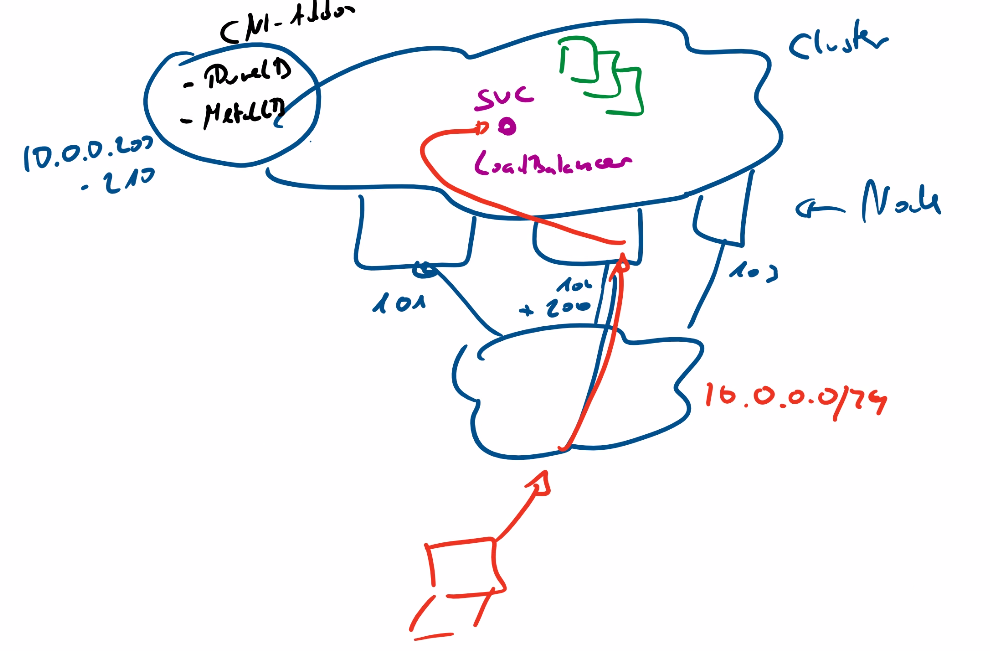 CNI-Addon
- PureLB
- MetalLB
10.0.0.200
- 210
Cluster
SVC
LoadBalancer
← Node
101
102
+ 200
103
10.0.0.0/24